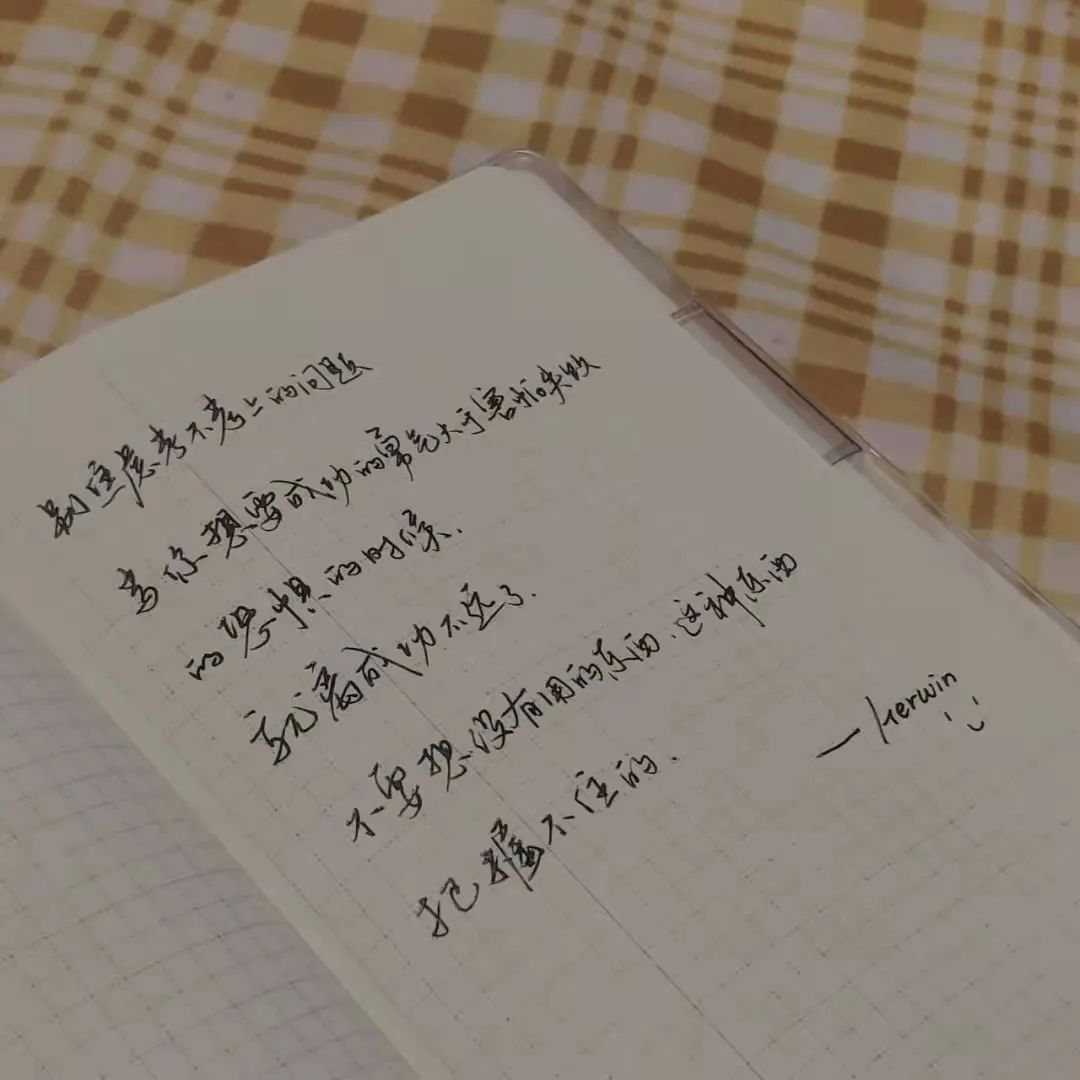 别焦虑考不考上的问题
当你想要成功的勇气大于害怕失败
的恐惧的时候.
就离成功不远了.
不要想没有用的东西.这种东西
把握不住的.
—Kerwin